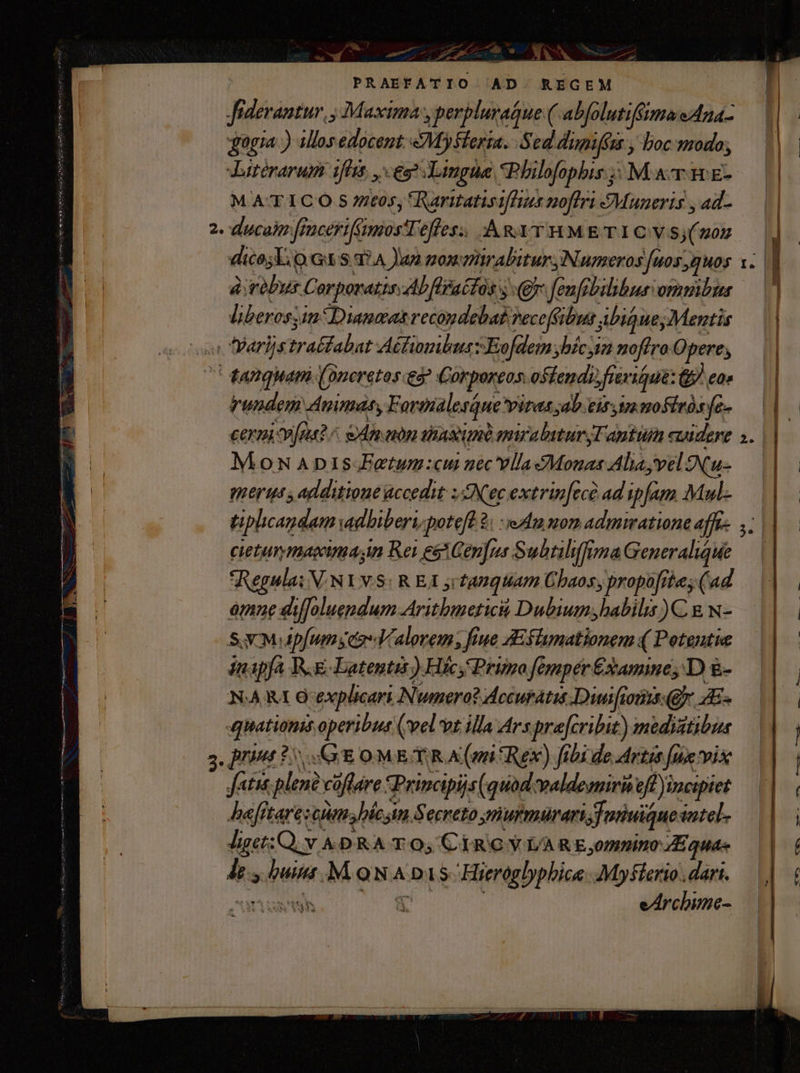 PRAEFATIO AD REGEM
ſiderantur, Maxima, perpluraque (abſolutiſsima Ana-
gogia) illos edocent Myſteria. Sed dimiſsis, hoc modo,
Literarum iſtis, & Linguæ Philoſophis; MATHE-
MATICOS meos, Raritatis iſtius noſtri Muneris, ad-
2. ducam ſinceriſsimos Teſtes. ARITHMETICVS, (non
dico, LOGISTA) an non mirabitur, Numeros ſuos, quos 1.
à rebus Corporatis, Abſtractos, & ſenſibilibus omnibus
liberos, in Dianœas recondebat receſsibus, ibique, Mentis
varijs tractabat Actionibus: Eoſdem, hîc, in noſtro Opere,
tanquam Concretos & Corporeos oſtendi, fierique: & eo-
rundem Animas, Formalesque vitas, ab eis, in noſtròs ſe-
cerni vſus? An non maximè mirabitur, Tantum videre 2.
MONADIS Fœtum: cui nec vlla Monas Alia, vel Nu-
merus, additione accedit: Nec extrinſecè ad ipſam Mul-
tiplicandam adhiberi poteſt? An non admiratione affi- 3.
cietur, maxima, in Rei & Cenſus Subtiliſſima Generalíque
Regula: VNIVS REI, tanquam Chaos, propoſitæ, (ad
omne diſſoluendum Arithmeticū Dubium, habilis) CEN-
SVM ipſum, & Valorem, ſiue Æſtimationem (Potentiæ
in ipſa RE Latentis) Hîc, Primo ſempér Examine, DE-
NARIO explicari Numero? Accuratis Diuiſionis & Æ-
quationis operibus (vel vt illa Ars præſcribit) mediātibus
3. prius? GEOMETRA (mi Rex) ſibi de Artis ſuæ vix
ſatis plenè cōſtare Principijs (quod valde mirū eſt) incipiet
hæſitare: cùm, hîc, in Secreto, murmurari, Innuique intel-
liget: QVADRATO, CIRCVLARE, omnino Æqua-
le, huius MONADIS Hieroglyphicæ Myſterio dari.
Archime-